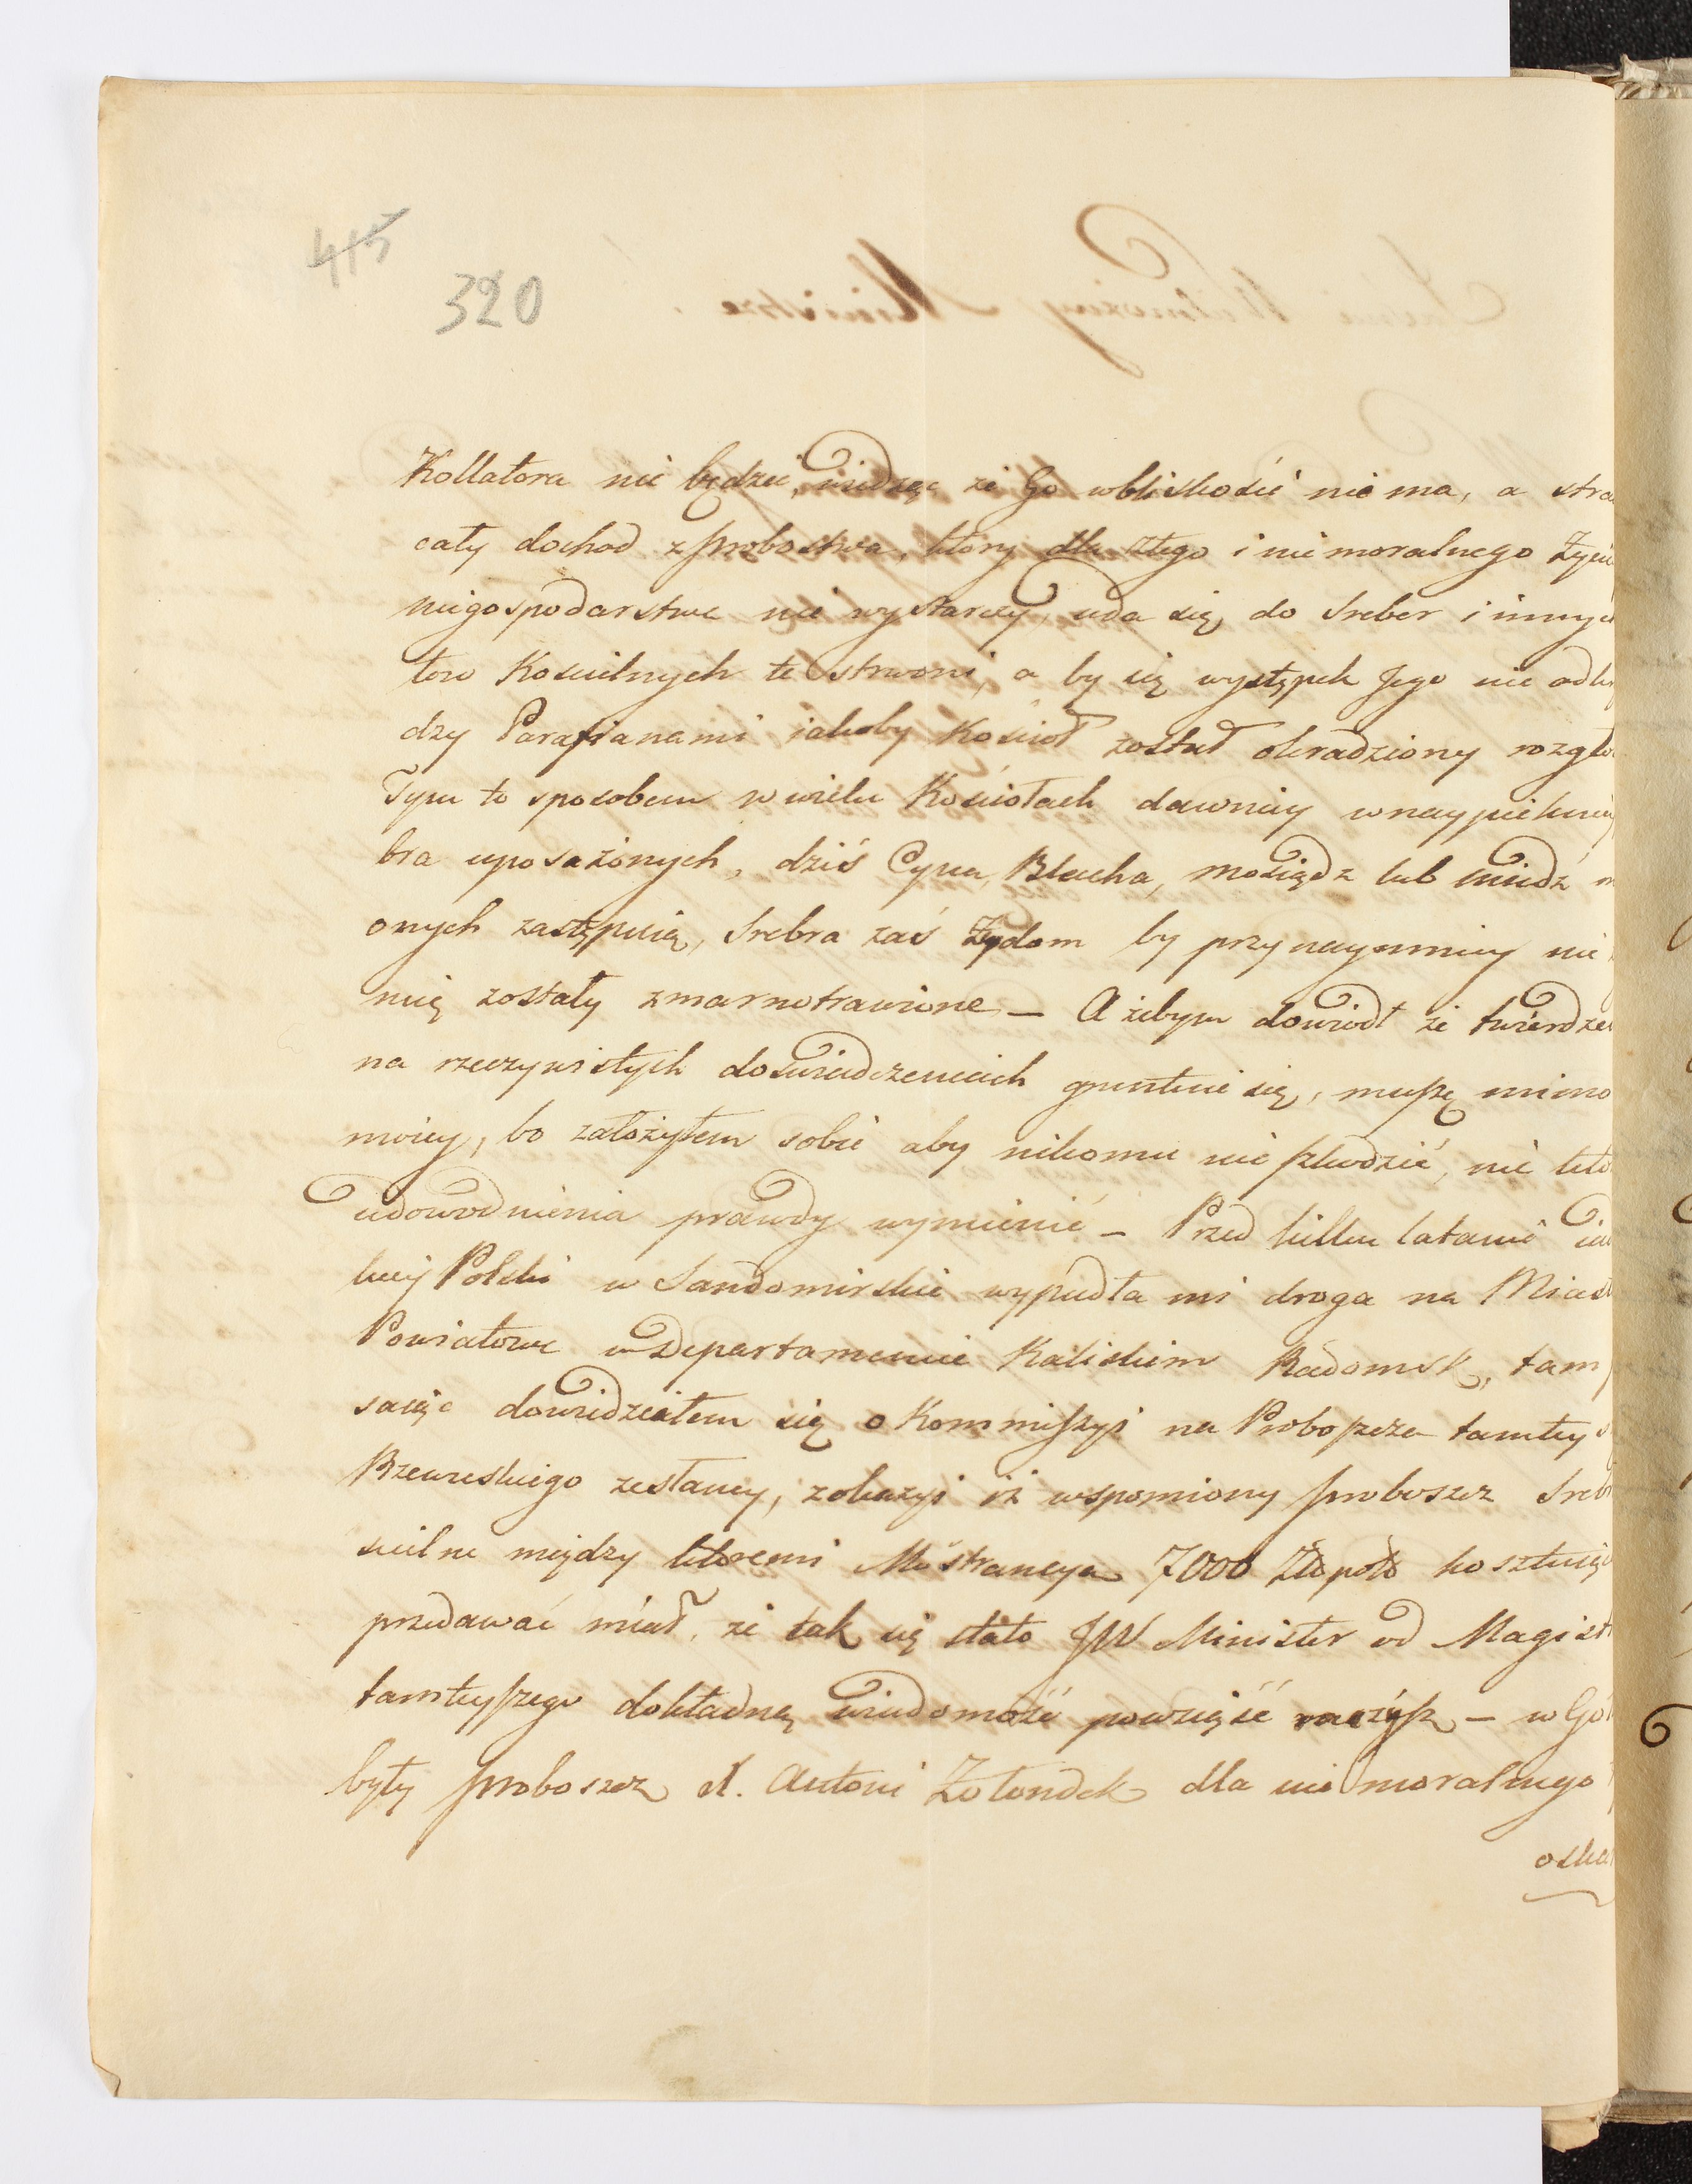 415
320
Kollatora nie będzie, widząc że Go wbliskośći nie ma, a stra
cały dochod z probostwa, ktory dla złego i nie moralnego Życia
niegospodarstwa nie wystarczy, uda się do Sreber i innych
tow Kościelnych te strwoni, a by się występek Jego nie odkr
dzy Parafianami iakoby Kościoł został okradziony rozgło
Tym to sposobem w wielu Kościołach dawniey w naypiekniey
bra uposażonych, dziś Cyna, Blacha, mosiądz lub miedź m
onych zastępuią, Srebra zaś Żydom by przynaymniey nie
mię zostały zmarnotrawione – A żebym dowiodł że twierdze
na rzeczywistych doświadczeniach gruntuie się, muszę mimo
moiey, bo założyłem sobie aby nikomu nie szkodzić, nie kto
udowodnienia prawdy wymienić – Przed kilku latami iad
kiey Polski w Sandomirskie wypadła mi droga na Miast
Powiatowe w Departamencie Kaliskim Radomsk, tam
saiąc dowiedziałem się o Kommissyi na Proboszcza tamtey s
Rzewuskiego zesłaney, z okazyi iż wspomiony proboszcz Sreb
cielne między ktoremi Mostrancya 7000 Złopols kosztuią
przedawać miał, że tak się stało JW Minister od Magist
tamteyszego dokładną wiadomość powziąść raczysz – w Gó
były proboszcz X. Antoni Zołondek dla nie moralnego
oska